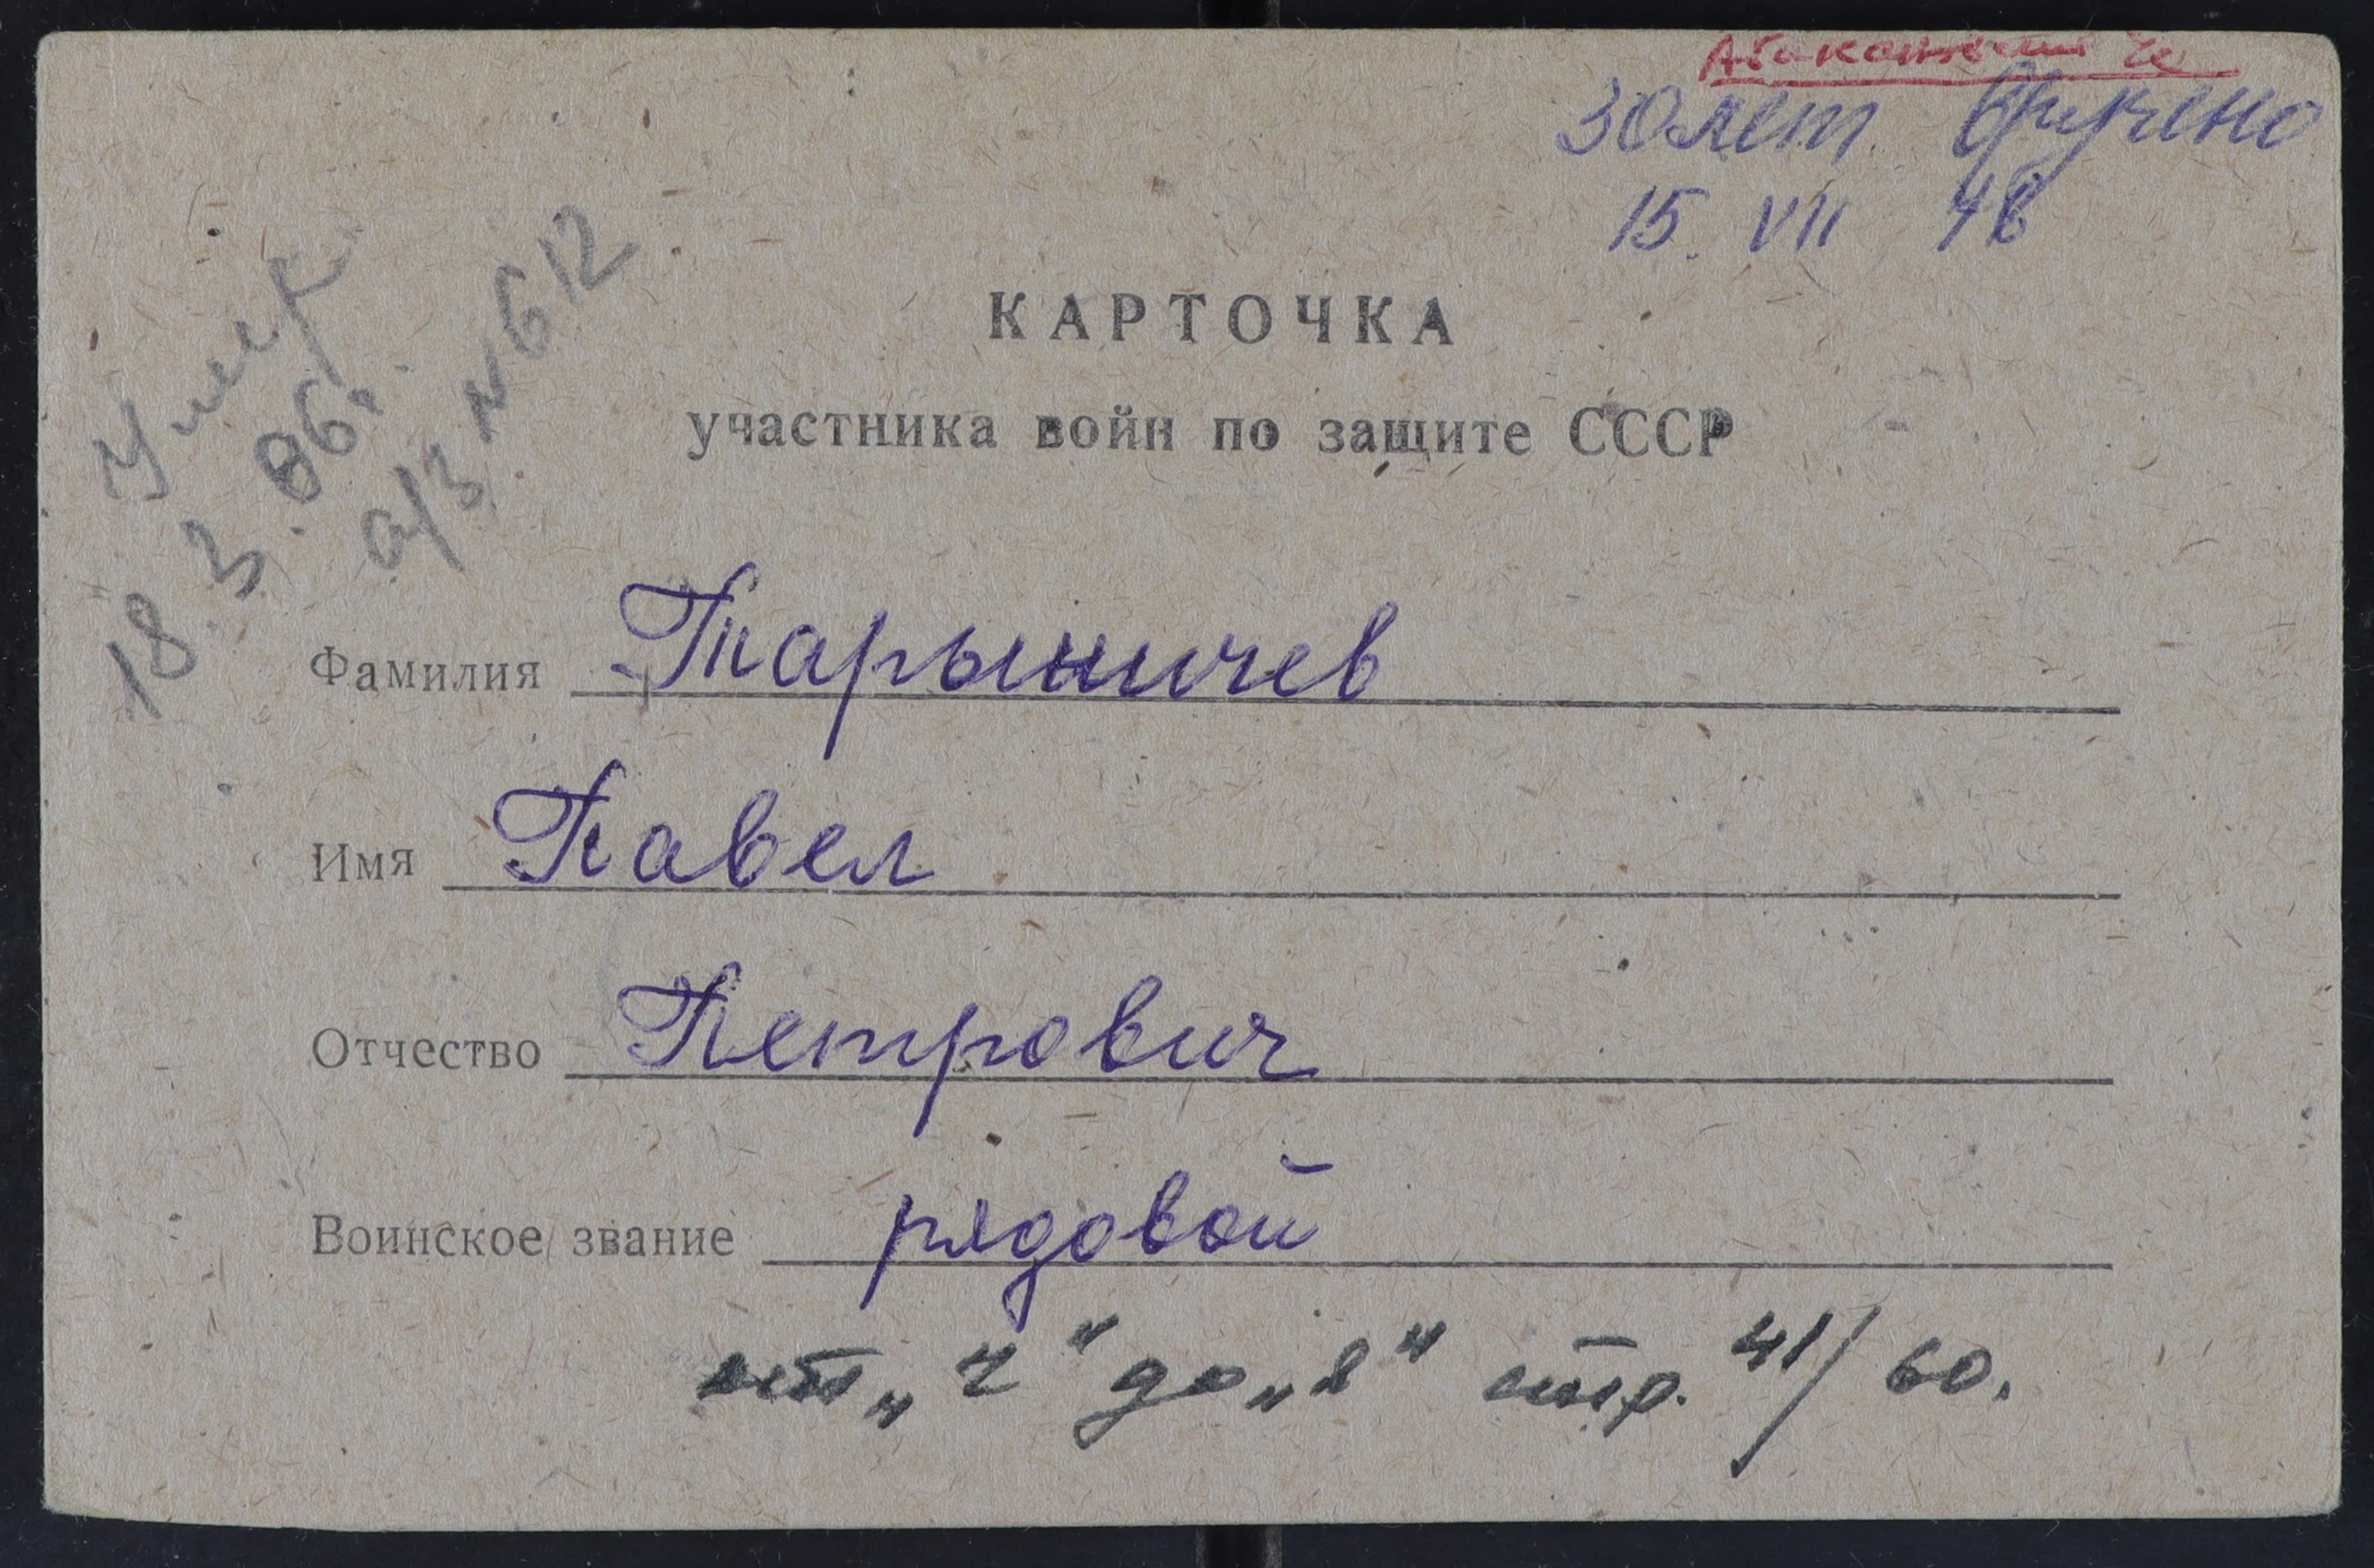 30 лет вручено
15. VII 48
Умер
18. 3. 86г.
а/з №612
КАРТОЧКА
участника войн по защите СССР
Фамилия Тарыничев
Имя Павел
Отчество Петрович
Воинское звание рядовой
от „Ч“ до „Я“ стр. 41/60.